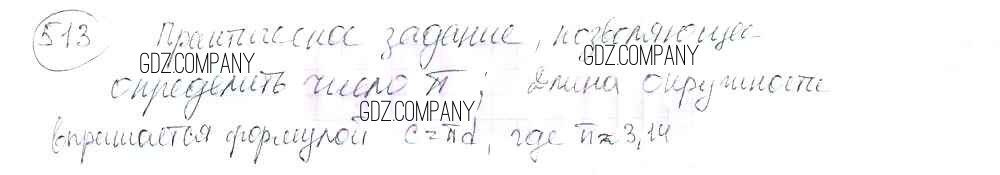 513 Практическое задание, позволяющее
GDZ.COMPANY GDZ.COMPANY
определить число π; Длина окружности
GDZ.COMPANY
выражается формулой C=πd, где π≈3,14